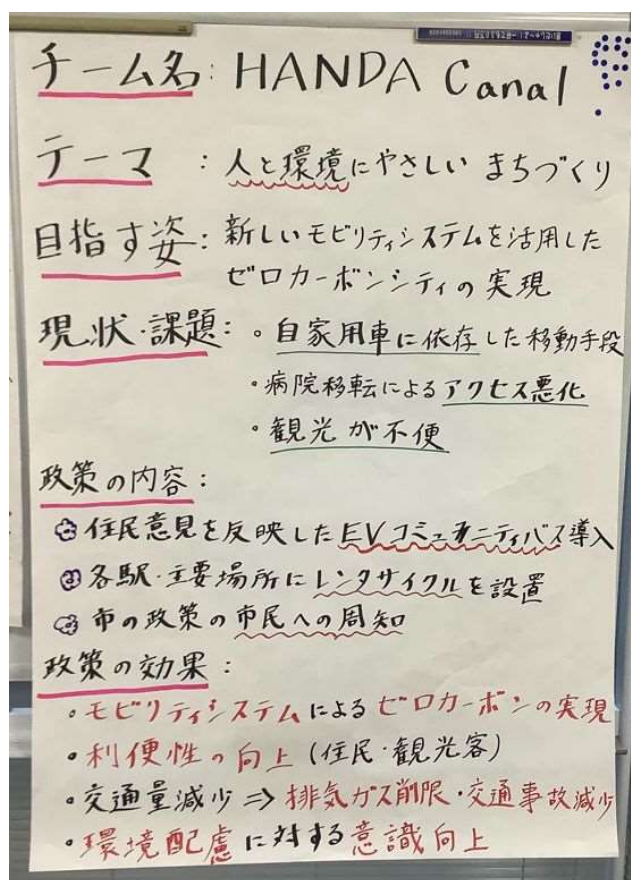 チーム名: HANDA Canal
テーマ : 人と環境にやさしい まちづくり
目指す姿: 新しいモビリティシステムを活用した
ゼロカーボンシティの実現
現状・課題: ・自家用車に依存した移動手段
・病院移転によるアクセス悪化
・観光が不便
政策の内容:
住民意見を反映したEVコミュニティバス導入
各駅・主要場所にレンタサイクルを設置
市の政策の市民への周知
政策の効果:
・モビリティシステムによるゼロカーボンの実現
・利便性の向上(住民・観光客)
・交通量減少⇒排気ガス削限・交通事故減少
・環境配慮に対する意識向上